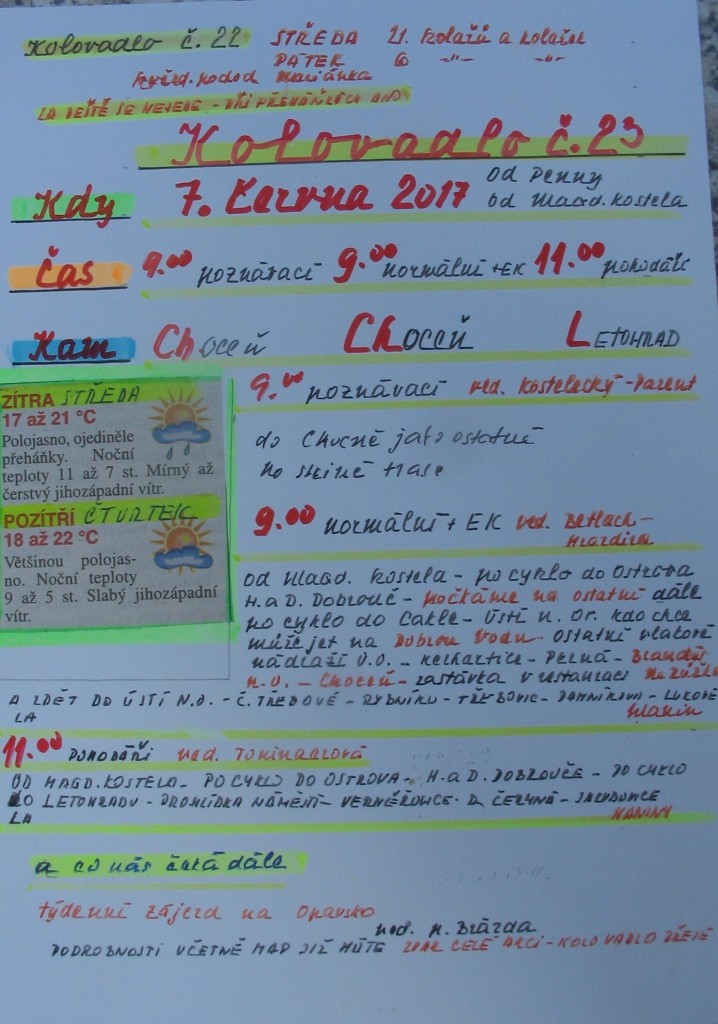 Kolovadlo č. 22 STŘEDA 21. kolařů a kolařek
PÁTEK 6 -"- -"-
hvězd. pochod Mariánka
LA JEŠTĚ SE NEJEDE - DŘÍ
Kolovadlo č. 23
Kdy 7. Června 2017 od Penny
od Magd. kostela
Čas 9.00 poznávací 9.00 normální + EK 11.00 pohodáři
Kam Choceň Choceň LETOHRAD
9.00 poznávací ved. Kostelecký - Parent
do Chocně jako ostatní
po stejné trase
ZÍTRA STŘEDA
17 až 21 °C
Polojasno, ojediněle
přeháňky. Noční
teploty 11 až 7 st. Mírný až
čerstvý jihozápadní vítr.
POZÍTŘÍ ČTVRTEK
18 až 22 °C
Většinou polojas-
no. Noční teploty
9 až 5 st. Slabý jihozápadní
vítr.
9.00 normální + EK ved. Betlach -
Hrazdira
od Magd. kostela - po cyklo do Ostrova
H. a D. Dobrouč - počkáme na ostatní dále
po cyklo do Lanšk - Ústí n. Or. kdo chce
může jet na Dobrou Vodu - ostatní vlakové
nádraží Ú.O. - Kerhartice - Perná - Brandýs
n. O. - Choceň - zastávka v restauraci
A ZPĚT DO ÚSTÍ N.O. - Č. TŘEBOVÉ - RYBNÍKU - TŘEBOVIC - DAMNÍKOVU - LUKOVÉ
LA
11.00 POHODÁŘI ved.
OD MAGD. KOSTELA - PO CYKLO DO OSTROVA - H. a D. DOBROUČE - PO CYKLO
DO LETOHRADU - PROHLÍDKA NÁMĚSTÍ - VERMĚŘOVICE - D. ČERMNÁ - JAKUBOVICE
LA
a co nás čeká dále
týdenní zájezd na Opavsko
ved. M. Brázda
PODROBNOSTI VČETNĚ MAP JIŽ MÁTE CELÉ AKCI - KOLOVADLO